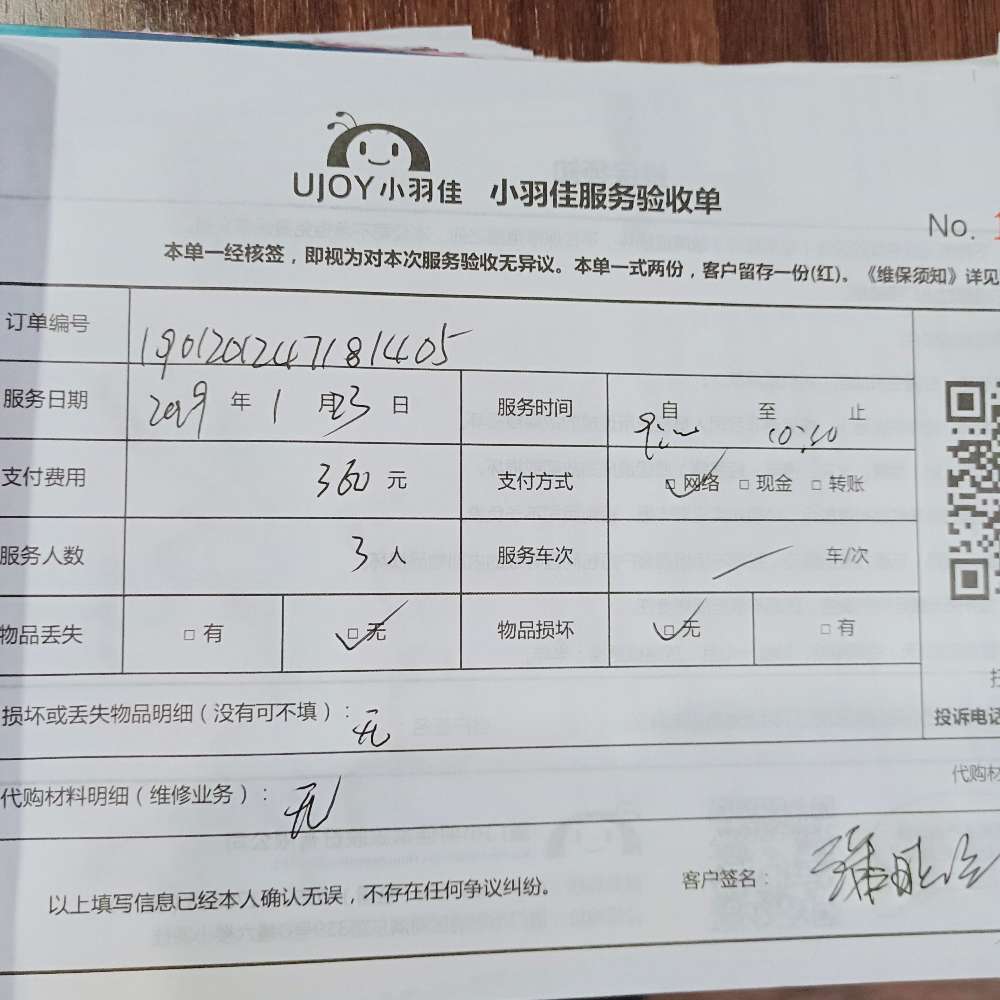 UJOY小羽佳 小羽佳服务验收单
No.
本单一经核签，即视为对本次服务验收无异议。本单一式两份，客户留存一份(红)。《维保须知》详见
订单编号 1901201247181405
服务日期 2019 年 1 月 23 日 服务时间 自 至 10:40 止
支付费用 360 元 支付方式 □ 网络 □ 现金 □ 转账
服务人数 3 人 服务车次 车/次
物品丢失 □ 有 □ 无 物品损坏 □ 无 □ 有
损坏或丢失物品明细（没有可不填）：无
投诉电话
代购材料明细（维修业务）：无
代购材
以上填写信息已经本人确认无误，不存在任何争议纠纷。
客户签名：